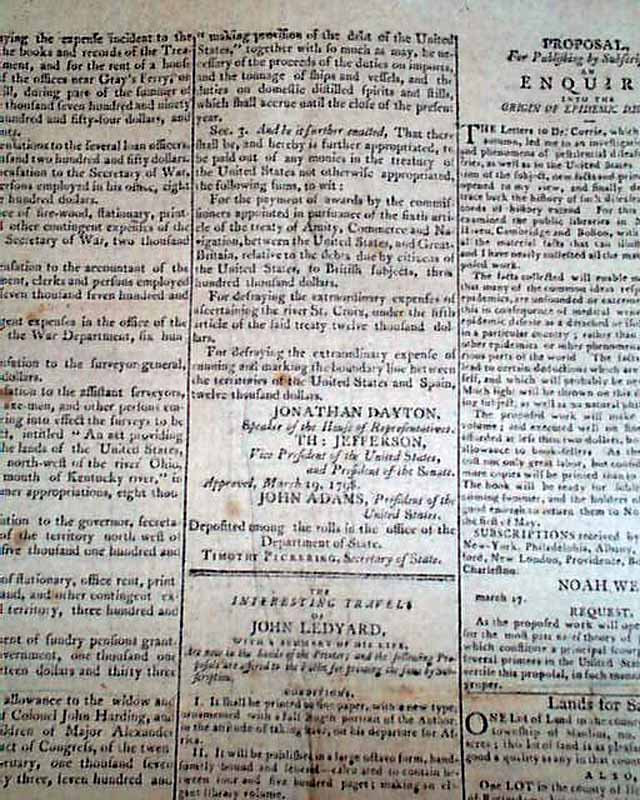 ying the expense incident to the
the books and records of the Trea-
ment, and for the rent of a house
of the offices near Gray's Ferry, on
ill, during part of the summer of
thousand seven hundred and ninety
hundred and fifty-four dollars, and
ents.
ensations to the several loan officers,
sand two hundred and fifty dollars.
ensation to the Secretary of War,
persons employed in his office, eight
hundred dollars.
ce of fire-wood, stationary, print-
d other contingent expenses of the
Secretary of War, two thousand
ensation to the accountant of the
ment, clerks and persons employed
eleven thousand seven hundred and
gent expenses in the office of the
the War Department, six hun
ensation to the surveyor-general,
dollars.
sation to the assistant surveyors,
axe-men, and other persons em-
ring into effect the surveys to be
ct, intitled "An act providing
the lands of the United States,
north-west of the river Ohio,
mouth of Kentucky river," in
mer appropriations, eight thou
ation to the governor, secreta-
of the territory north west of
five thousand one hundred and
of stationary, office rent, print
and, and other contingent ex-
territory, three hundred and
ment of sundry pensions grant-
government, one thousand one
teen dollars and thirty three
allowance to the widow and
Colonel John Harding, and
ildren of Major Alexander
act of Congress, of the twen
ruary, one thousand seven
y three, seven hundred and
" making provision of the debt of the United
States," together with so much as may, be ne-
cessary of the proceeds of the duties on imports,
and the tonnage of ships and vessels, and the
duties on domestic distilled spirits and stills,
which shall accrue until the close of the present
year.
Sec. 3. And be it further enacted, That there
shall be, and hereby is further appropriated, to
be paid out of any monies in the treasury of
the United States not otherwise appropriated,
the following sums, to wit:
For the payment of awards by the commis-
sioners appointed in pursuance of the sixth arti-
cle of the treaty of Amity, Commerce and Na-
vigation, between the United States, and Great-
Britain, relative to the debts due by citizens of
the United States, to British subjects, three
hundred thousand dollars.
For defraying the extraordinary expenses of
ascertaining the river St. Croix, under the fifth
article of the said treaty twelve thousand dol
lars.
For defraying the extraordinary expense of
running and marking the boundary line between
the territories of the United States and Spain,
twelve thousand dollars.
JONATHAN DAYTON,
Speaker of the House of Representatives.
TH: JEFFERSON,
Vice President of the United States,
and President of the Senate.
Approved, March 19, 1798.
JOHN ADAMS, President of the
United States.
Deposited among the rolls in the office of the
Department of State.
TIMOTHY PICKERING, Secretary of State.
THE
INTERESTING TRAVELS
OF
JOHN LEDYARD,
WITH A SUMMARY OF HIS LIFE,
Are now in the hands of the Printer; and the following Pro-
posals are offered to the Public for printing the same by Sub-
scription.
CONDITIONS.
I. It shall be printed on fine paper, with a new type,
ornamented with a full length portrait of the Author,
in the attitude of taking leave, on his departure for Af-
rica.
II. It will be published in a large octavo form, hand-
somely bound and lettered—calculated to contain be-
tween four and five hundred pages; making an ele-
gant library volume.
PROPOSAL,
For Publishing by Subscrip
AN
ENQUIR
INTO THE
ORIGIN OF EPIDEMIC DI
THE Letters to Dr. Currie, which
autumn, led me to an investigation
and phenomena of pestilential disea
ries, as well as in the United States
tion of the subject, new facts and prin
opened to my view, and finally
trace back the history of such diseases
words of history extend For this
examined the public libraries in
Haven, Cambridge and Boston, with
all the material facts that can
and I have nearly collected all the mat
posed work.
The facts collected will enable
that many of the common ideas resp
epidemics, are unfounded or extreme
this in consequence of medical
epidemic disease as a detached or
in a particular country; rather than
other epidemics or other phenomena
rious parts of the world The facts
lead to certain deductions which are
self, and which will probably be
Much light will be thrown on this
ing subject, as well as on natural phi
The proposed work will
volume; and executed well on
afforded at less than two dollars,
allowance to book-sellers. As the
cost not only great labor, but
more copies will be printed than
The book will be ready for
coming summer, and the holders
good enough to return them to
the first of May.
SUBSCRIPTIONS received by
New-York, Philadelphia, Albany,
ford, New London, Providence, Bo
Charleston.
NOAH WE
march 17.
REQUEST.
As the proposed work will
for the most part as of theory of
which constitute a principal
several printers in the United States
vertise this proposal, in such manner
proper.
Lands for Sa
ONE Lot of Land in the
township of Manlius, no.
acres; this lot of land is as pleas
good a quality as any in that
ALSO
One LOT in the county of